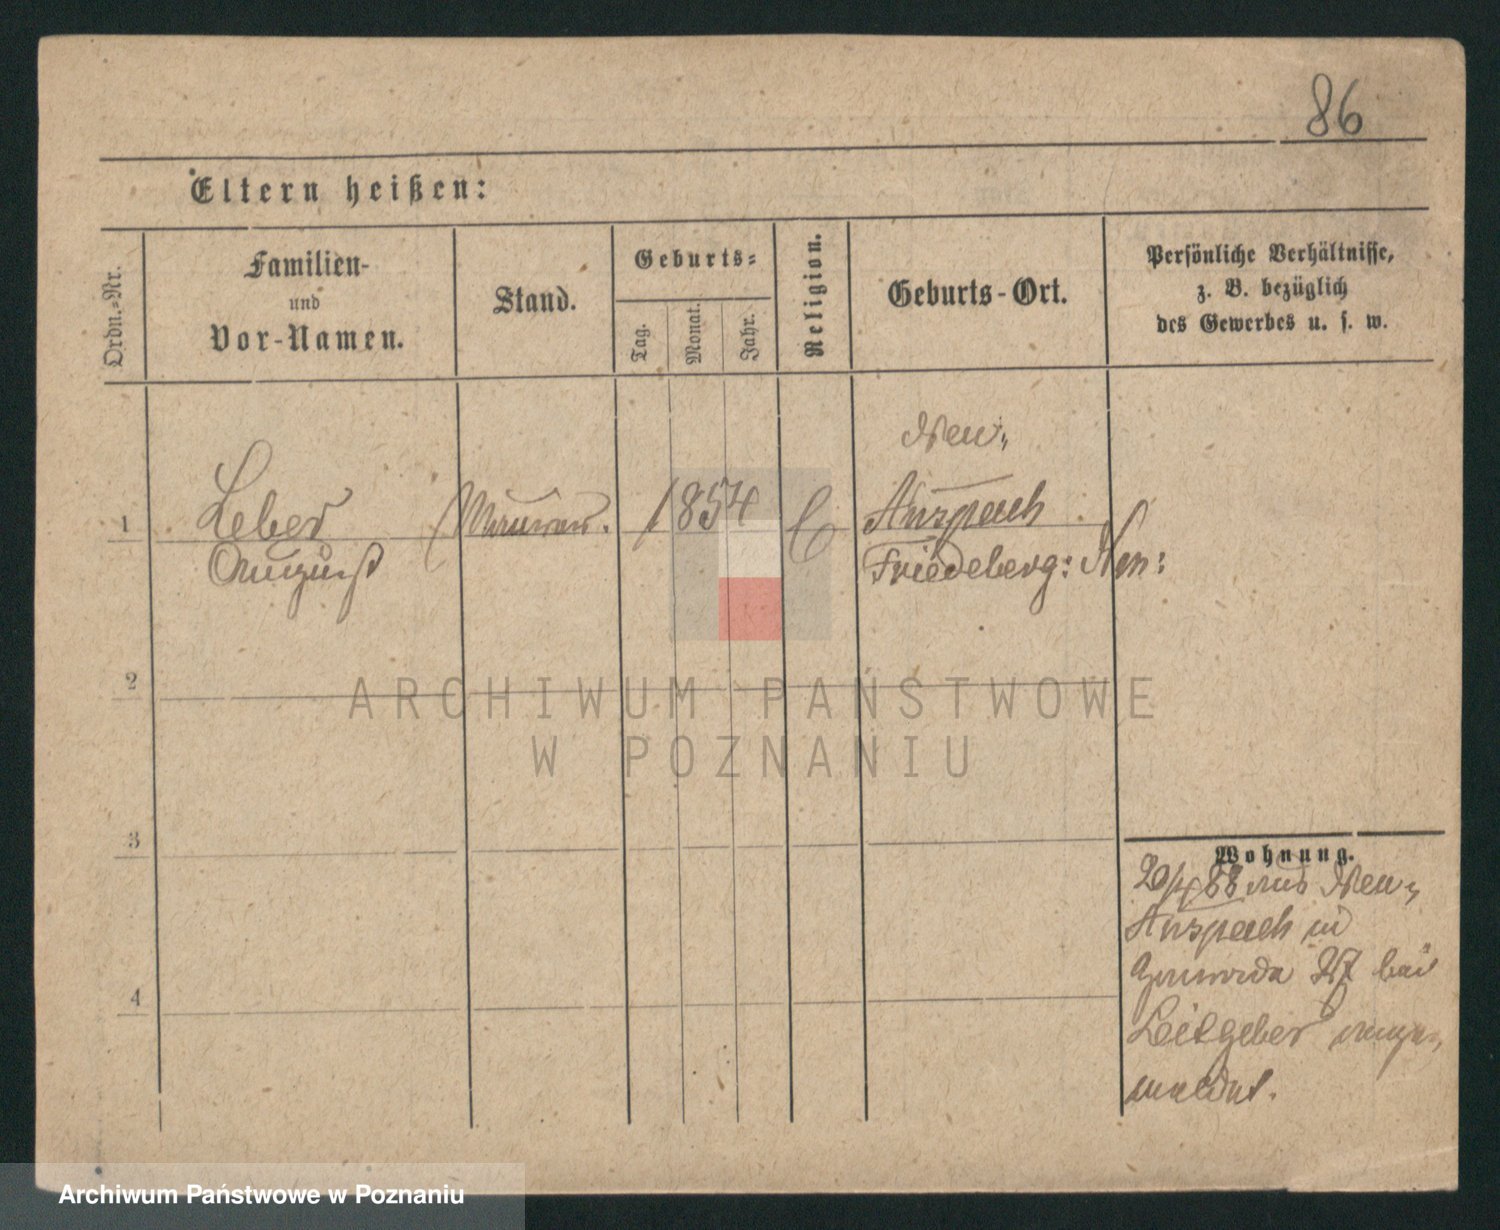 86
Eltern heißen:
Ordn.-Nr.
Familien-
und
Vor-Namen.
Stand.
Geburts-
Tag.
Monat.
Jahr.
Religion.
Geburts-Ort.
Persönliche Verhältnisse,
z. B. bezüglich
des Gewerbes u. s. w.
Neu-
1
Leber
Maurer.
1854
Anspach
August
Friedeberg: Nm:
2
ARCHIWUM PAŃSTWOWE
W POZNANIU
3
Wohnung.
20/4 88 aus Neu-
Anspach in
27 bei
4
Leitgeber ange-
meldet.
Archiwum Państwowe w Poznaniu